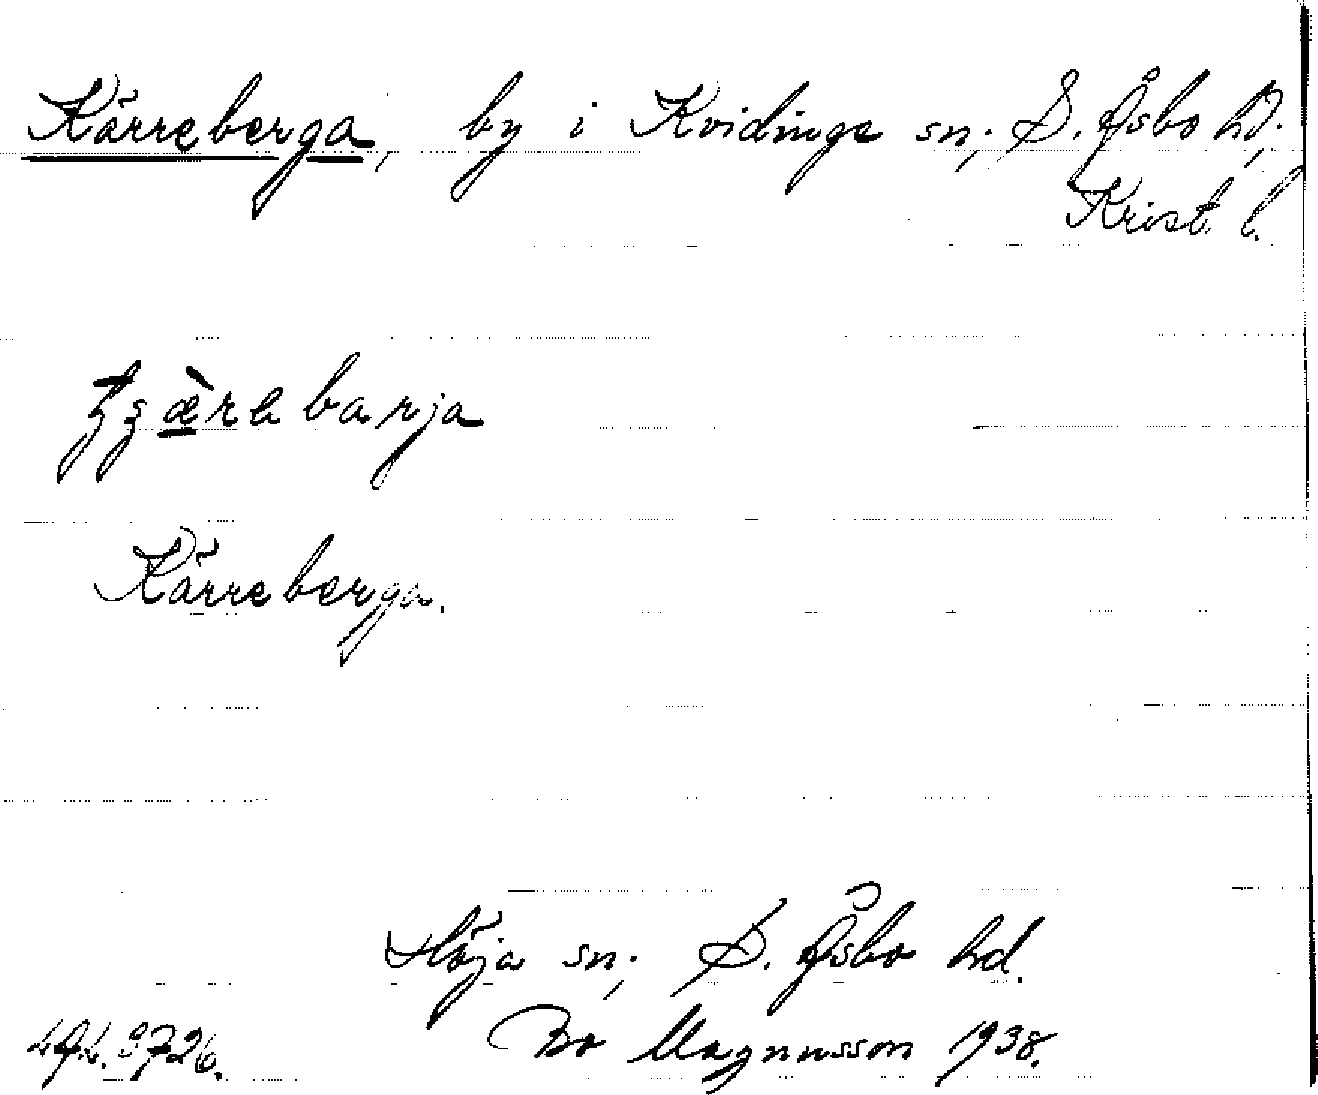 Kärreberga, by i Kvidinge sn, S. Åsbo hd,
Krist. l.
Kärreberga.
Höja sn, S. Åsbo hd.
3726. Bo Magnusson 1938.